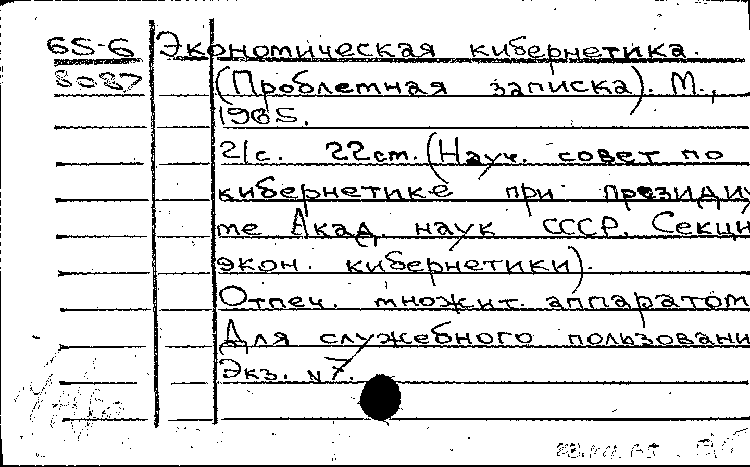 65-6 Экономическая кибернетика.
8087 (Проблемная записка). М.,
1965.
21с. 22см. (Науч. совет по
кибернетике при президиу
ме Акад. наук СССР. Секци
экон. кибернетики).
Отпеч. множит. аппаратом
Для служебного пользовани
Экз. № 7.